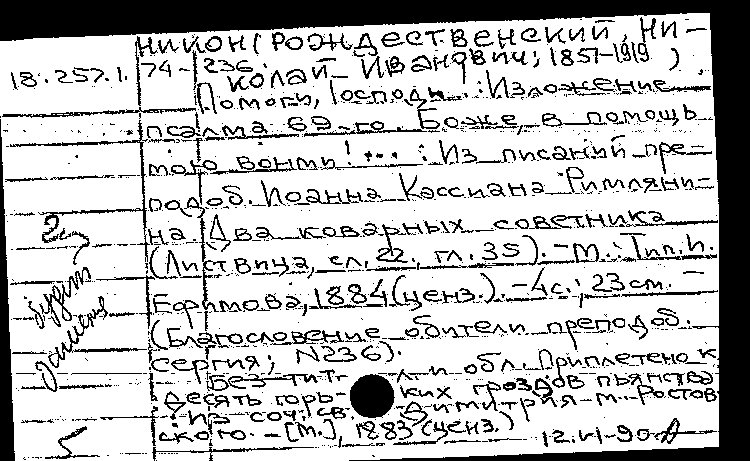 НИКОН (РОЖДЕСТВЕНСКИЙ, НИ-
18.257.1. 74-236. КОЛАЙ ИВАНОВИЧ; 1857-1919)
Помоги, Господи!: Изложение
псалма 69-го. Боже, в помощь
мою вонми!...: Из писаний пре-
подоб. Иоанна Кассиана Римляни-
на Два коварных советника
(Листвица, сл. 22, гл. 35). - М.: Тип. И.
Ефимова, 1884 (ценз.). - 4с.; 23см. -
(Благословение обители преподоб.
Сергия; N236).
Без тит. л. и обл. Приплетено к
Десять горь ких гроздов пьянства
: Из соч. св. Димитрия - м. Ростов-
ского. - [М.], 1883 (ценз.)
12.VI-90
2
будет
5